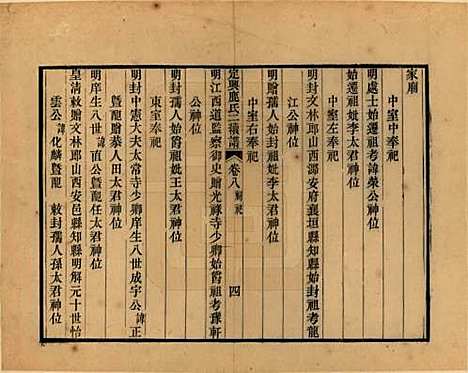 家廟
中室中奉祀
明處士始遷祖考諱榮公神位
始遷祖妣李太君神位
中室左奉祀
明封文林郎山西潞安府襄垣縣知縣始封祖考龍
江公神位
明贈孺人始封祖妣李太君神位
中室右奉祀
定興鹿氏二續譜 卷八 祠祀 四
明江西道監察御史贈光祿寺少卿始爵祖考豫軒
公神位
明封孺人始爵祖妣王太君神位
東室奉祀
明封中憲大夫太常寺少卿庠生八世成宇公諱正
暨龍贈恭人田太君神位
明庠生八世諱直公暨龍任太君神位
皇清敕贈文林郎山西安邑縣知縣明解元十世怡
雲公諱化麟暨龍 敕封孺人孫太君神位